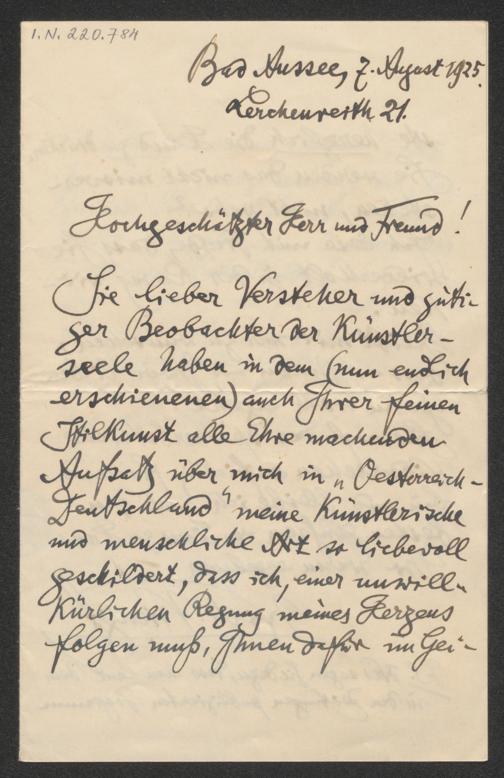 I.N. 220.784
Bad Aussee, 7. August 1925.
Lerchenreith 21.
Hochgeschätzter Herr und Freund!
Sie lieber Versteher und güti-
ger Beobachter der Künstler-
seele haben in dem (nun endlich
erschienenen) auch Ihrer feinen
Stilkunst alle Ehre machenden
Aufsatz über mich in „Oesterreich-
Deutschland" meine Künstlerische
und menschliche Art so liebevoll
geschildert, dass ich, einer unwill-
kürlichen Regung meines Herzens
folgen muß, Ihnen dafür im Gei-